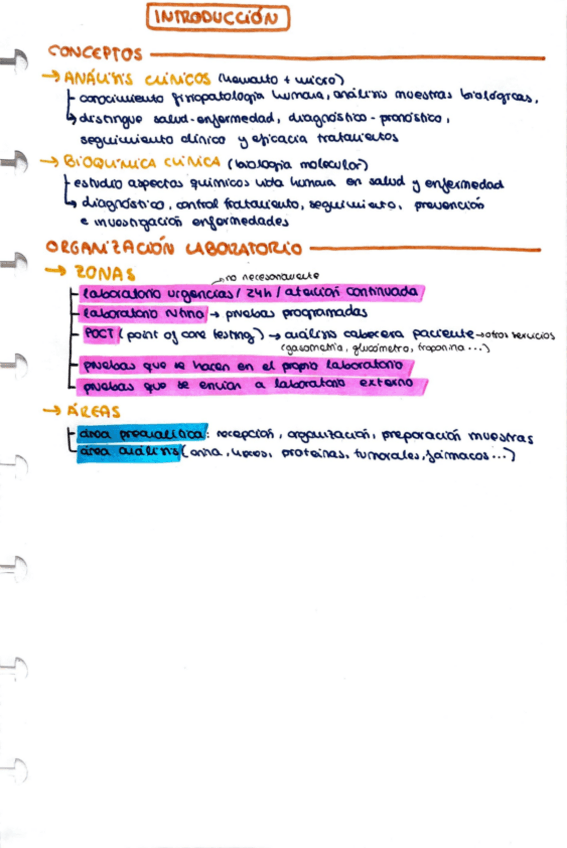 INTRODUCCIÓN
CONCEPTOS
→ ANÁLISIS CLÍNICOS (hemato + micro)
conocimiento fisiopatología humana, análisis muestras biológicas,
distingue salud-enfermedad, diagnóstico-pronóstico,
seguimiento clínico y eficacia tratamientos
→ BIOQUÍMICA CLÍNICA (biología molecular)
estudio aspectos químicos vida humana en salud y enfermedad
diagnóstico, control tratamiento, seguimiento, prevención
e investigación enfermedades
ORGANIZACIÓN LABORATORIO
→ ZONAS
no necesariamente
laboratorio urgencias / 24h / atención continuada
laboratorio rutina → pruebas programadas
POCT (point of care testing) → análisis cabecera paciente → otros servicios
(gasometría, glucómetro, troponina...)
pruebas que se hacen en el propio laboratorio
pruebas que se envían a laboratorio externo
→ ÁREAS
área preanalítica: recepción, organización, preparación muestras
área análisis (orina, heces, proteínas, tumorales, fármacos...)